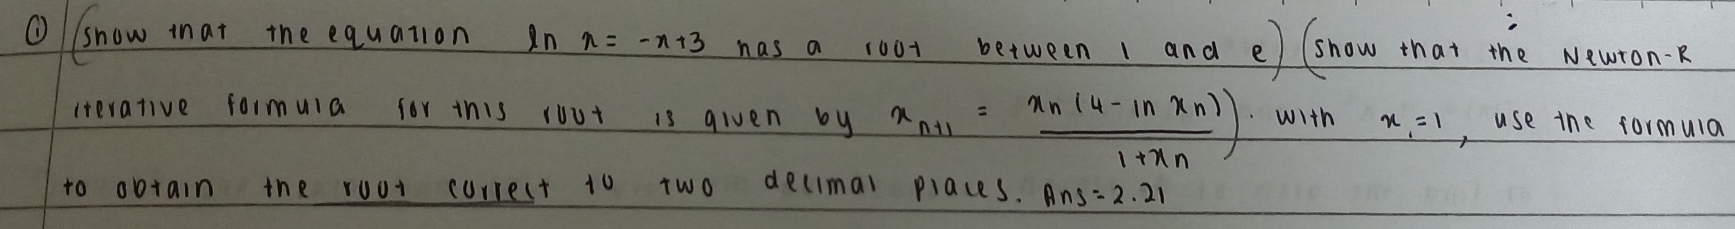 ① (show that the equation ln x = -x+3 has a root between 1 and e) (show that the Newton-R
iterative formula for this root is given by xₙ₊₁ = xₙ(4 - ln xₙ)/(1+xₙ)). With x₁=1, use the formula
to obtain the root correct to two decimal places. Ans=2.21